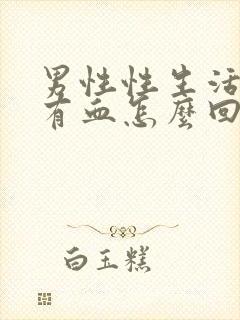 男性性生活
有血怎麼回
白玉糕